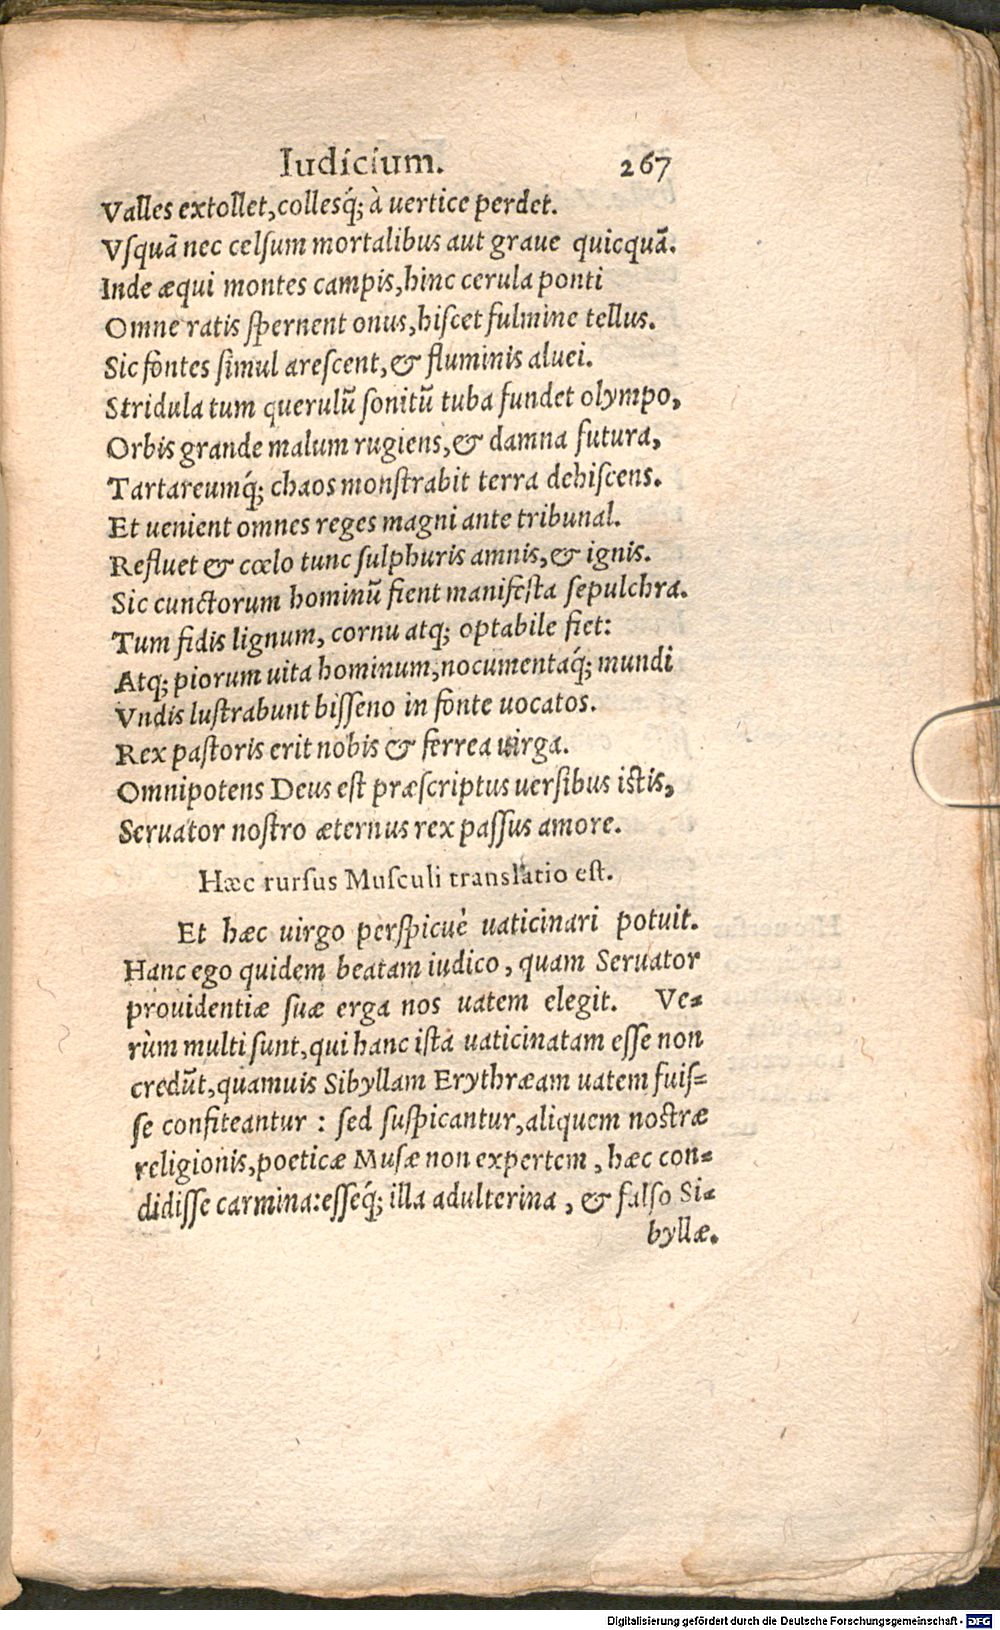 Iudicium. 267
Valles extollet, collesq́; à uertice perdet.
Vſquā nec celſum mortalibus aut graue quicquā.
Inde æqui montes campis, hinc cerula ponti
Omne ratis ſpernent onus, hiſcet fulmine tellus.
Sic fontes ſimul areſcent, & fluminis aluei.
Stridula tum querulū ſonitū tuba fundet olympo,
Orbis grande malum rugiens, & damna futura,
Tartareumq́; chaos monſtrabit terra dehiſcens.
Et uenient omnes reges magni ante tribunal.
Refluet & cœlo tunc ſulphuris amnis, & ignis.
Sic cunctorum hominū fient manifeſta ſepulchra.
Tum fidis lignum, cornu atq; optabile fiet:
Atq; piorum uita hominum, nocumentaq́; mundi
Vndis luſtrabunt biſſeno in fonte uocatos.
Rex paſtoris erit nobis & ferrea uirga.
Omnipotens Deus eſt præſcriptus uerſibus iſtis,
Seruator noſtro æternus rex paſſus amore.
Hæc rurſus Muſculi translatio eſt.
Et hæc uirgo perſpicuè uaticinari potuit.
Hanc ego quidem beatam iudico, quam Seruator
prouidentiæ ſuæ erga nos uatem elegit. Ve-
rùm multi ſunt, qui hanc iſta uaticinatam eſſe non
credūt, quamuis Sibyllam Erythræam uatem fuiſ-
ſe confiteantur : ſed ſuſpicantur, aliquem noſtræ
religionis, poeticæ Muſæ non expertem, hæc con-
didiſſe carmina: eſſeq́; illa adulterina, & falſo Si-
byllæ.
Digitalisierung gefördert durch die Deutsche Forschungsgemeinschaft - DFG